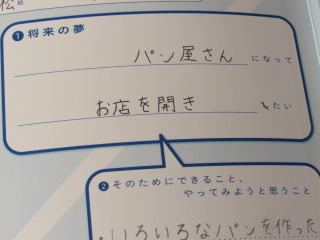 松 組
❶ 将来の夢
パン屋さん になって
お店を開き たい
❷ そのためにできること、
やってみようと思うこと
・いろいろなパンを作った